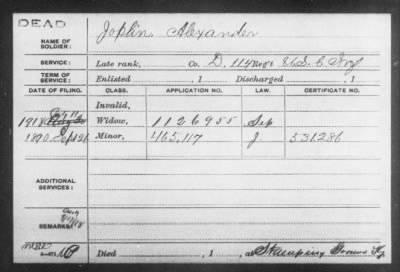 DEAD
NAME OF SOLDIER: Joplin, Alexander
SERVICE: Late rank, Co. D, 114 Reg't U.S.C. Inf
TERM OF SERVICE: Enlisted , 1 Discharged , 1
DATE OF FILING. CLASS. APPLICATION NO. LAW. CERTIFICATE NO.
Invalid,
1918 Widow, 1126955 Sep
1890 Sept Minor, 465,117 J. 531286
ADDITIONAL SERVICES:
REMARKS:
Died , 1 , at Stamping Ground Ky.